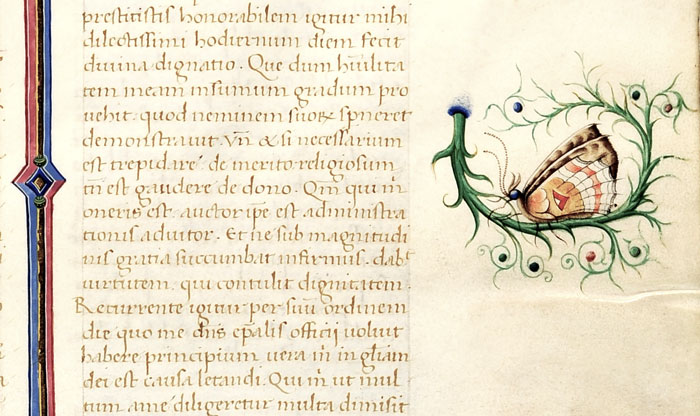 prestitistis honorabilem igitur mihi
dilectissimi hodiernum diem fecit
divina dignatio. Que dum hūilita
tem meam insumum gradum pro
vehit. quod neminem suoꝝ sperneret
demonstravit. Vñ & si necessarium
est trepidare de merito. religiosum
tñ est gaudere de dono. Qm̄ qui m̄
oneris est auctor ip̄e est administra
tionis adiutor. Et ne sub magnitudi
nis gratia succumbat infirmus. dabit
virtutem. qui contulit dignitatem.
Recurrente igitur per suū ordinem
die quo me dn̄s ep̄alis officij voluit
habere principium vera m̄ in gl̄iam
dei est causa letandi. Qui m̄ ut mul
tum a me diligeretur multa dimisit